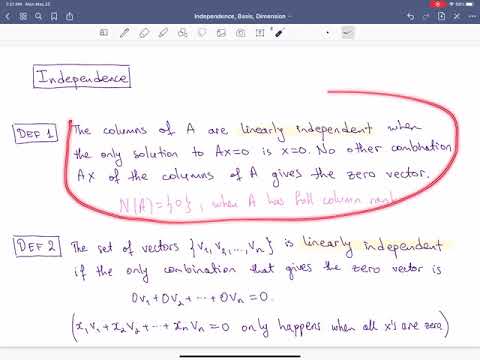 Mon May 25
Independence, Basis, Dimension
Independence
DEF 1 The columns of A are linearly independent when
the only solution to Ax=0 is x=0. No other combination
Ax of the columns of A gives the zero vector.
N(A)={0}, when A has full column rank
DEF 2 The set of vectors {v₁,v₂,...,vₙ} is linearly independent
if the only combination that gives the zero vector is
0v₁+0v₂+···+0vₙ=0.
(x₁v₁+x₂v₂+···+xₙvₙ=0 only happens when all x's are zero)